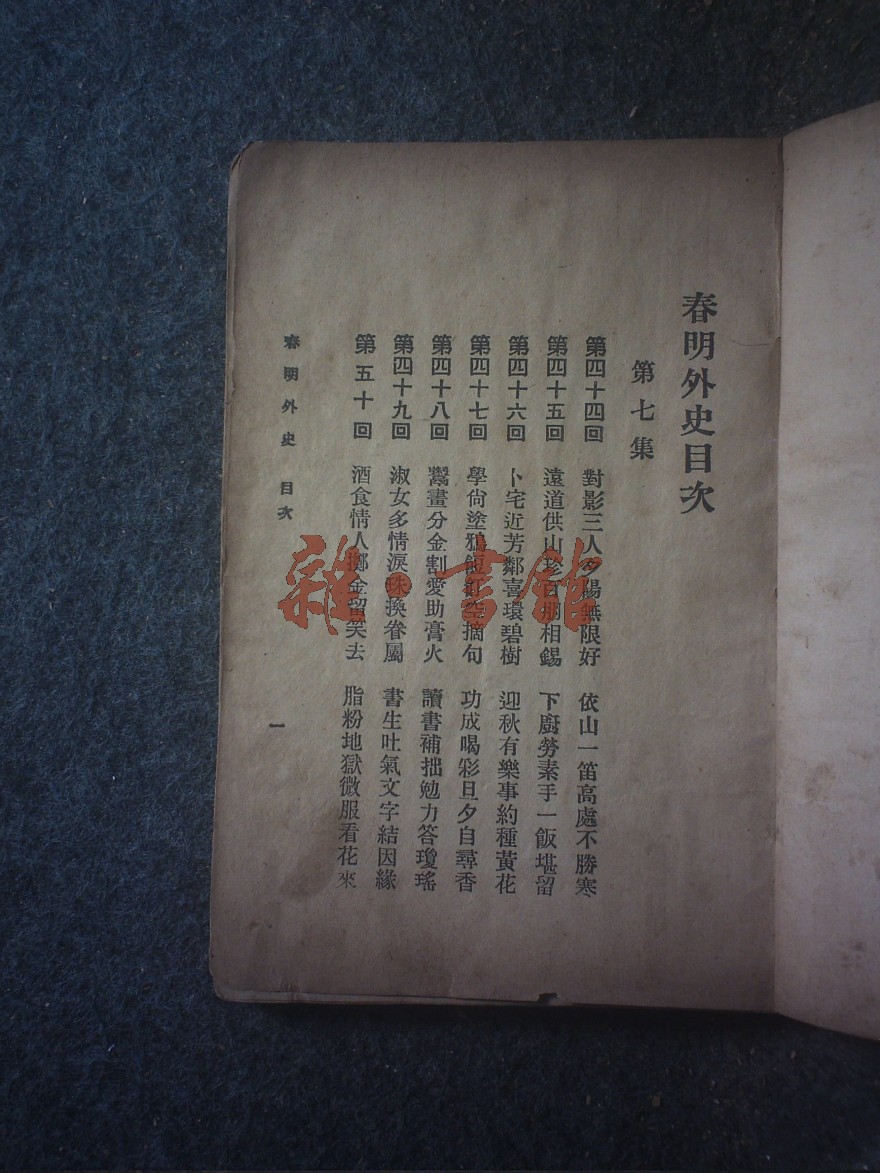 春明外史目次
第七集
第四十四回 對影三人夕陽無限好 依山一笛高處不勝寒
第四十五回 遠道供山珍百朋相錫 下廚勞素手一飯堪留
第四十六回 卜宅近芳鄰喜環碧樹 迎秋有樂事約種黃花
第四十七回 學尙塗鴉 摘句 功成喝彩旦夕自尋香
第四十八回 鬻畫分金割愛助膏火 讀書補拙勉力答瓊瑤
第四十九回 淑女多情淚珠換眷屬 書生吐氣文字結因緣
第五十回 酒食情人擲金留笑去 脂粉地獄微服看花來
春明外史 目次
一
雜·書館